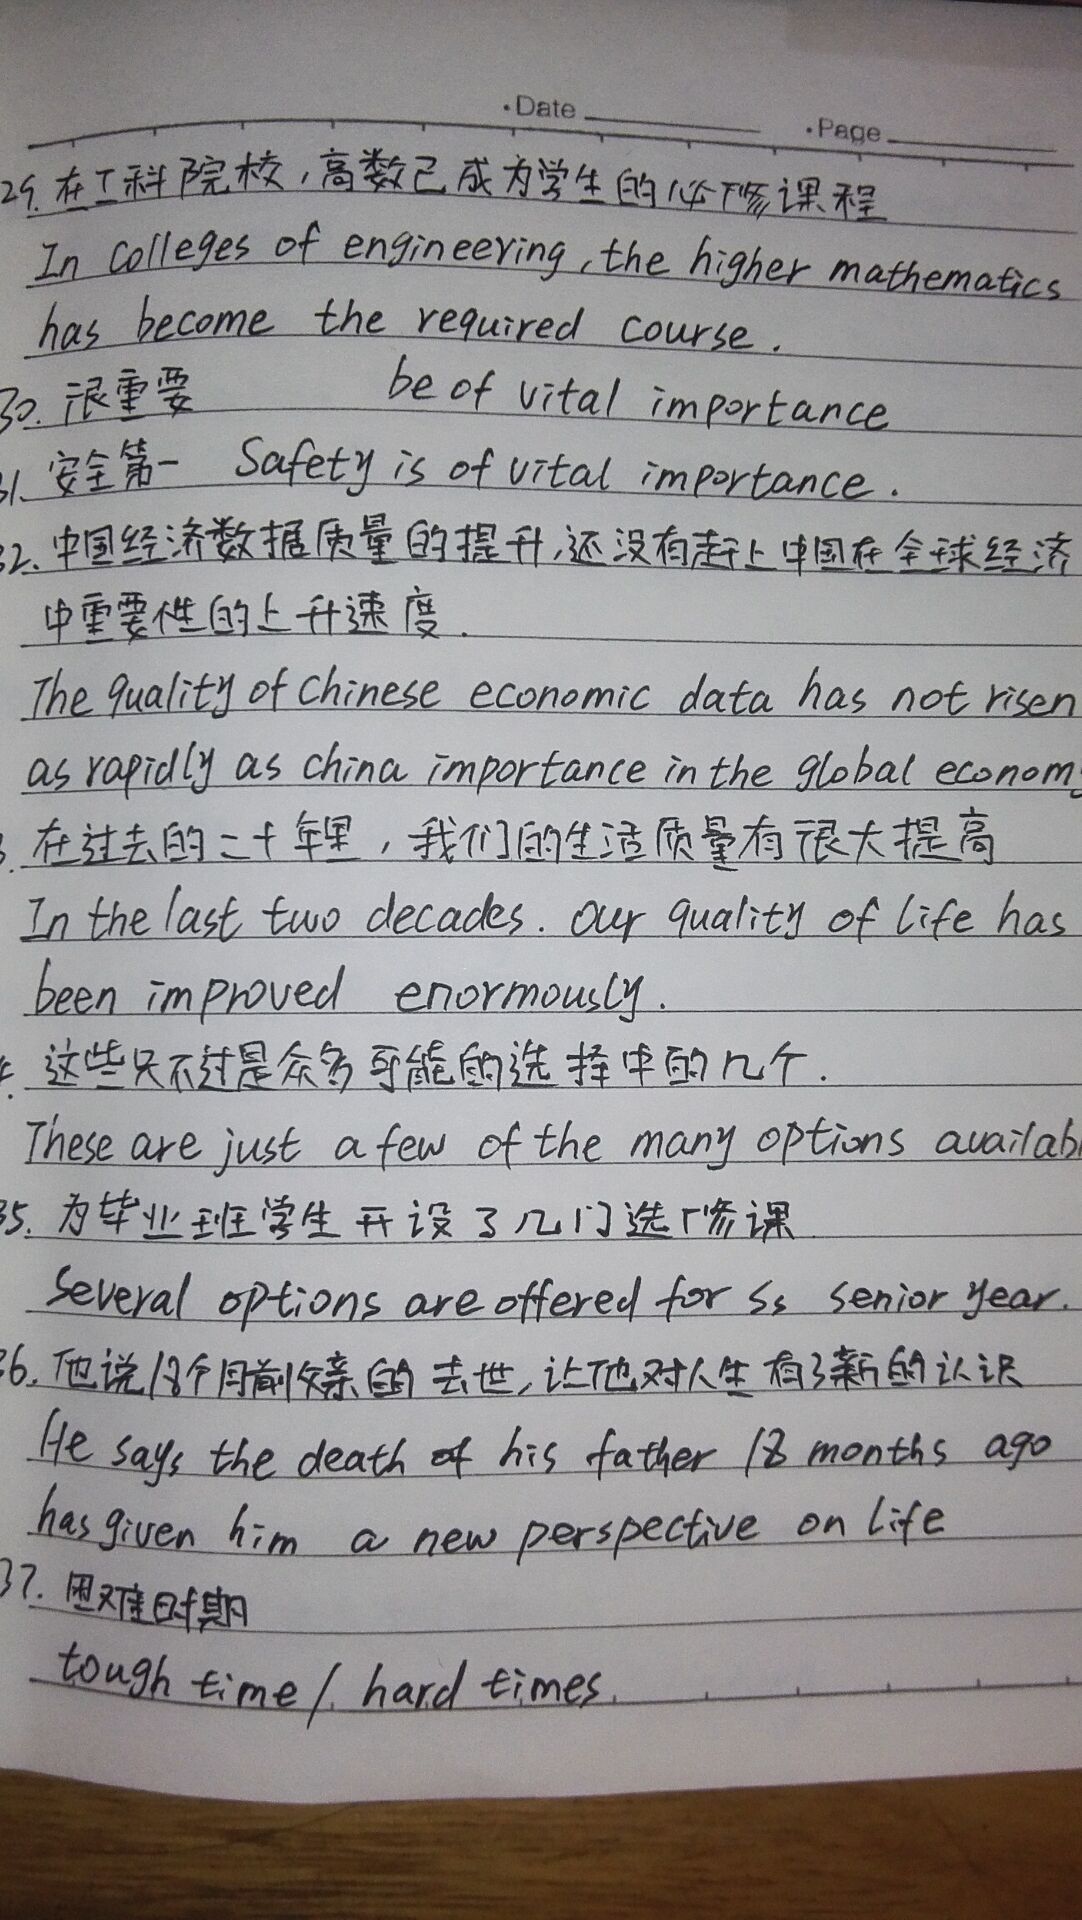 ·Date
·Page
29. 在工科院校，高数已成为学生的必修课程
In colleges of engineering, the higher mathematics
has become the required course.
30. 很重要 be of vital importance
31. 安全第一 Safety is of vital importance.
32. 中国经济数据质量的提升，还没有赶上中国在全球经济
中重要性的上升速度.
The quality of Chinese economic data has not risen
as rapidly as china importance in the global econom
在过去的二十年里，我们的生活质量有很大提高
In the last two decades. our quality of life has
been improved enormously.
这些只不过是众多可能的选择中的几个.
These are just a few of the many options availab
35. 为毕业班学生开设了几门选修课
Several options are offered for Ss senior year.
36. 他说18个月前父亲的去世，让他对人生有了新的认识
He says the death of his father 18 months ago
has given him a new perspective on life
37. 困难时期
tough time / hard times.